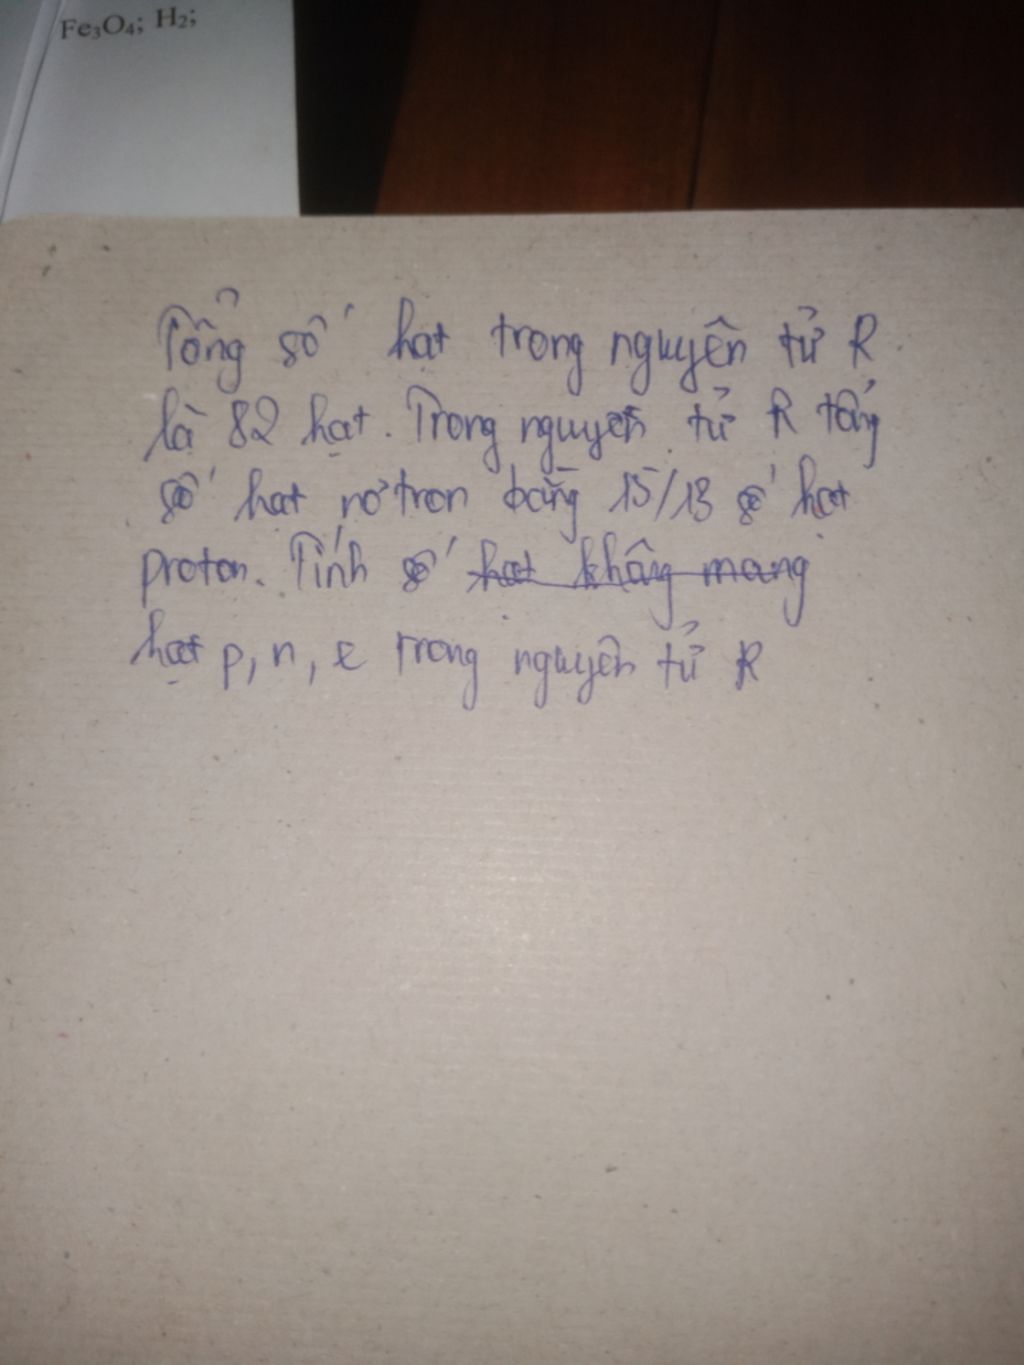 Fe₃O₄; H₂;
Tổng số hạt trong nguyên tử R
là 82 hạt. Trong nguyên tử R tổng
số hạt nơtron bằng 15/13 số hạt
proton. Tính số hạt không mang
hạt p, n, e trong nguyên tử R